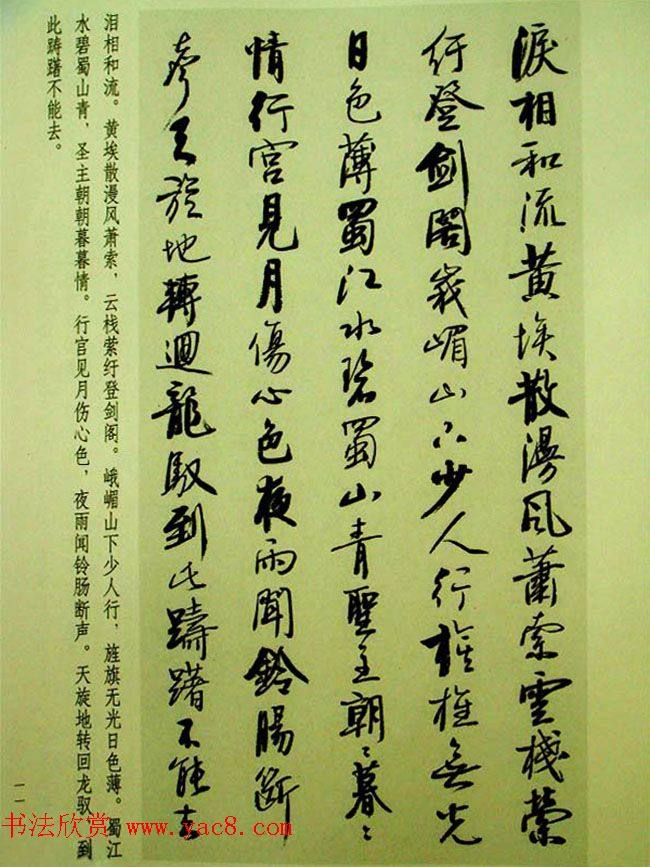 淚相和流黄埃散漫風蕭索雲棧縈
紆登劍閣峩嵋山下少人行旌旗無光
日色薄蜀江水碧蜀山青聖主朝〻暮〻
情行宮見月傷心色夜雨聞鈴腸斷
聲天旋地轉迴龍馭到此躊躇不能去
泪相和流。黄埃散漫风萧索，云栈萦纡登剑阁。峨嵋山下少人行，旌旗无光日色薄。蜀江
水碧蜀山青，圣主朝朝暮暮情。行宫见月伤心色，夜雨闻铃肠断声。天旋地转回龙驭，到
此踌躇不能去。
一一
书法欣赏 www.yac8.com